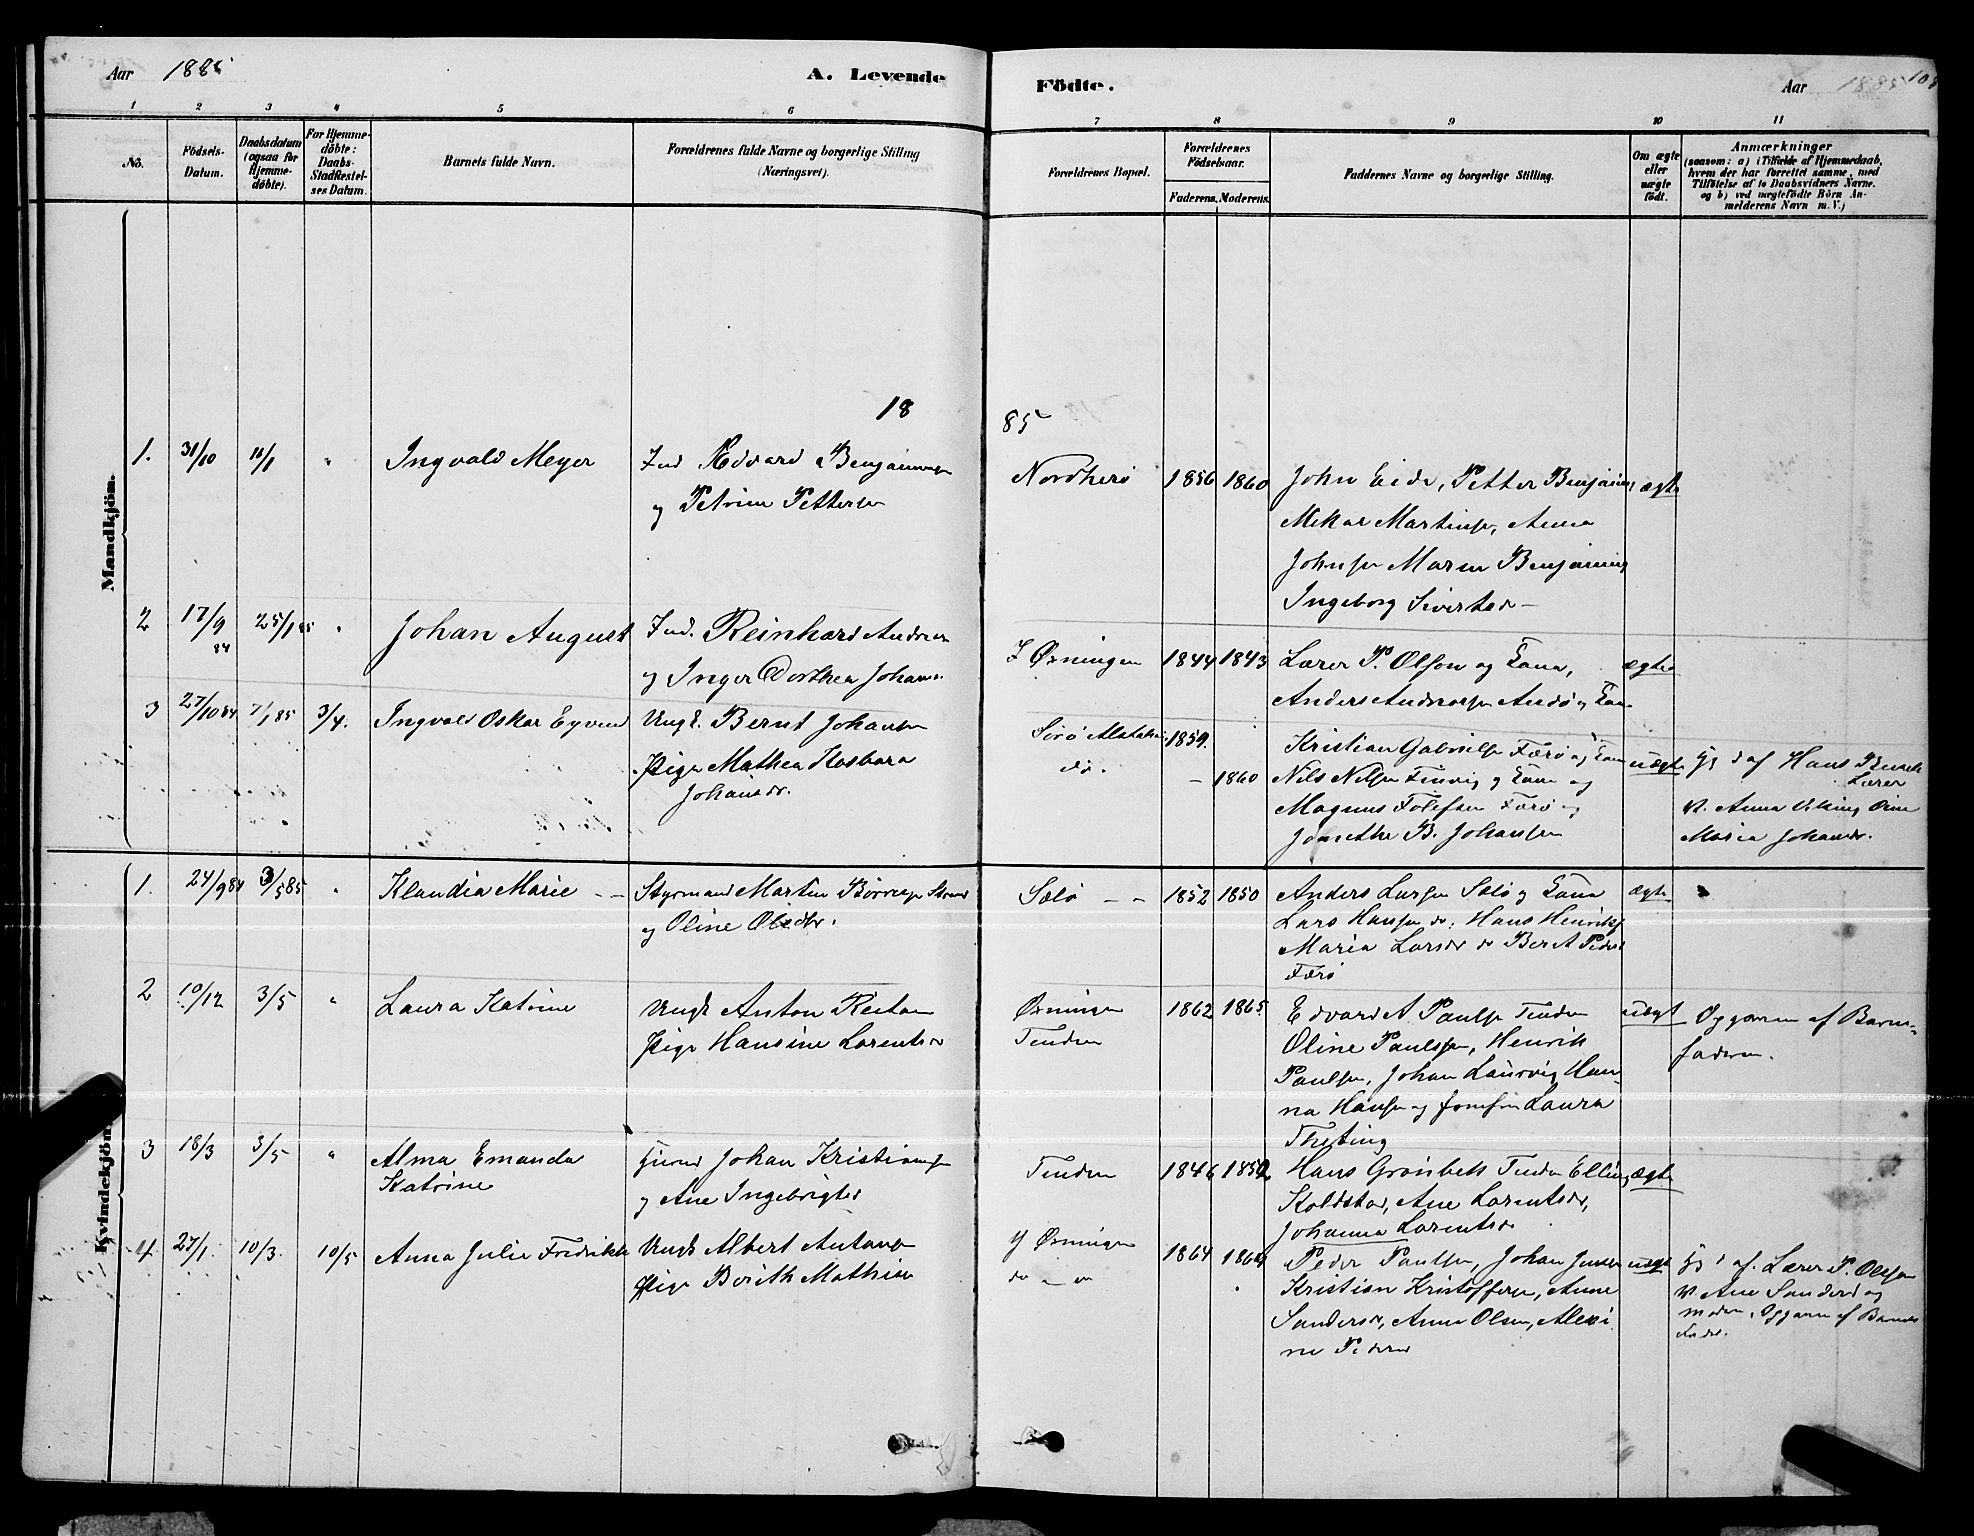 Aar 1885
A. Levende
Födte.
Aar 1885
1 2 3 4 5 6 7 8 9 10 11
No.
Födsels-
Datum.
Daabsdatum
(ogsaa for
Hjemme-
döbte).
For Hjemme-
döbte:
Daabs-
Stadfæstel-
ses Datum.
Barnets fulde Navn.
Forældrenes fulde Navne og borgerlige Stilling
(Næringsvei).
Forældrenes Bopæl.
Forældrenes
Födselsaar.
Faderens. Moderens.
Faddernes Navne og borgerlige Stilling.
Om ægte
eller
uægte
födt.
Anmærkninger
(saasom: a) i Tilfælde af Hjemmedaab,
hvem der har forrettet samme, med
Tilföielse af to Daabsvidners Navne.
og b) ved uægtefödte Börn An-
melderens Navn m. V.)
18 85
Mandkjön.
1. 31/10 11/1 " Ingvald Meyer
Ind Edvard Benjaminsen
og Petrine Pettersen
Nordherö 1856 1860
John Eide, Petter Benjamins
Mekar Martinsen, Anna
Johnsen Maren Benjamins
Ingeborg Sivertsdr
ægte
2 17/9 84 25/1 85 " Johan August
Ind. Reinhard Andreas
og Inger Dorthea Johans.
Z Öxningen 1844 1843
Lærer P. Olsen og Kone,
Anders Andreasen Andö og Kone
ægte
3 27/10 84 7/1 85 3/4. Ingvald Oskar Eyvind
Ungk. Bernt Johansen
Pige Mathea Kosbara
Johansdr.
Sörö Alstahaug 1859.
do. – 1860
Kristian Gabrielsen Færö og Kone
Nils Nilsen Finvig og Kone og
Magnus Tollefsen Færö og
Jonethe B. Johansen
uægte
Hj d af Hans
Lærer
v. Anna Viking Oline
Maria Johansdr.
Kvindekjön.
1. 24/9 84 3/5 85 " Klaudia Marie
Styrmand Martin Börresen Strand
og Oline Olsdtr.
Sælö 1852 1850
Anders Larsen Sælö og Kone
Lars Hansen do. Hans Henriks
Maria Larsdr do Berit Peders
Færö
ægte
2 10/12 3/5 " Laura Katrine
Ungk Anton Reitan
Pige Hansine Lorentsdr
Öxningen
Tenden
1862 1865
Edvard A Paulsen Tenden
Oline Paulsen, Henrik
Paulsen, Johan Laurvig Han-
na Hansen og Josefine Laura
Theting
uægt
Opgaven af Barne-
faderen.
3 18/3 3/5 " Alma Emanda
Katrine
Johan Kristiansen
og Ane Ingebrigtsdr
Tenden 1846 1852
Hans Grönbek Tenden Elling
Koldstad, Ane Lorentsdr,
Johanna Lorentsdr
ægte
4. 27/1. 10/3. 10/5 Anna Julie Fredrikke
Ungk Albert Antons
Pige Berith Mathisen
Y Öxningen
do
1864 1864
Peder Paulsen, Johan Jensen
Kristian Kristoffersen, Anne
Sandersdr, Anna Olsen, Alexi
ne Peders
uægt
Hj d af. Lærer P. Olsen
v. Ane Sandersd og
moderen, Opgaven af Barnets
Fader.